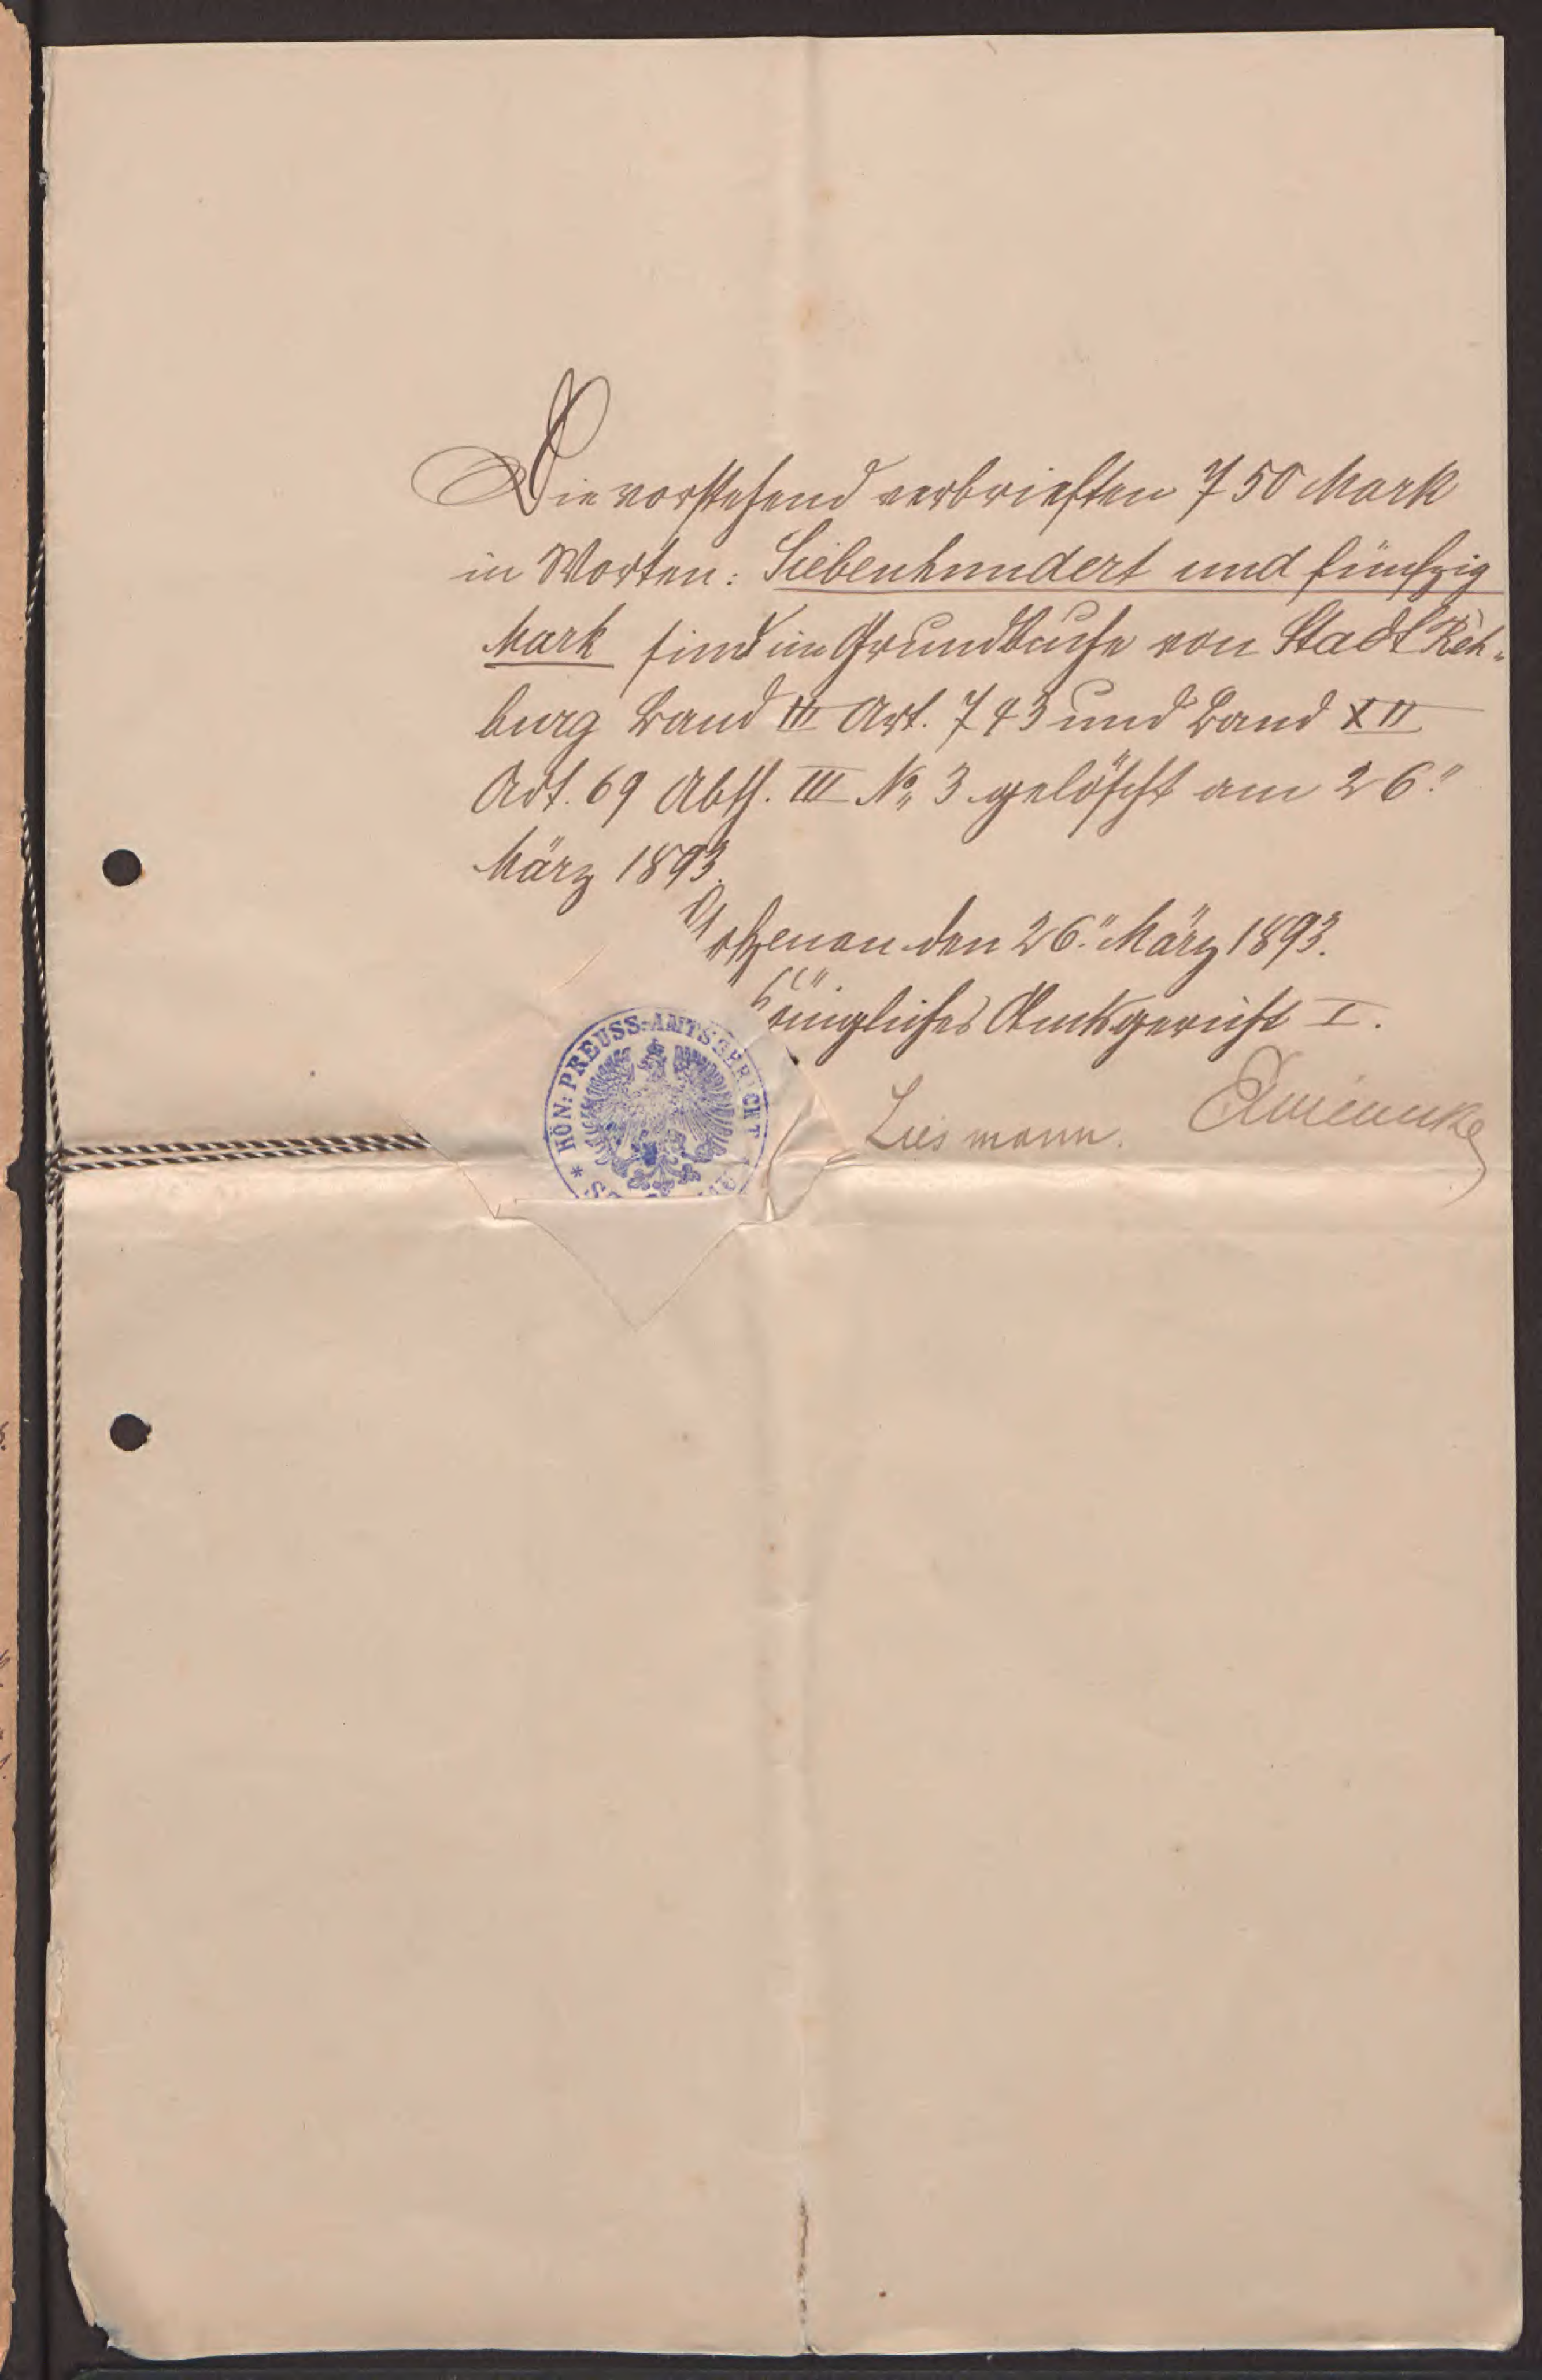 Die vorstehend verbrieften 750 Mark
in Worten: Siebenhundert und fünfzig
Mark sind im Grundbuche von Stadt Reh-
burg Band III Art. 743 und Band XII
Art. 69 Abth. III No 3 gelöscht am 26.
März 1893.
Stolzenau den 26. März 1893.
Königliches Amtsgericht I.
KÖN: PREUSS: AMTSGERICHT
Liesmann.